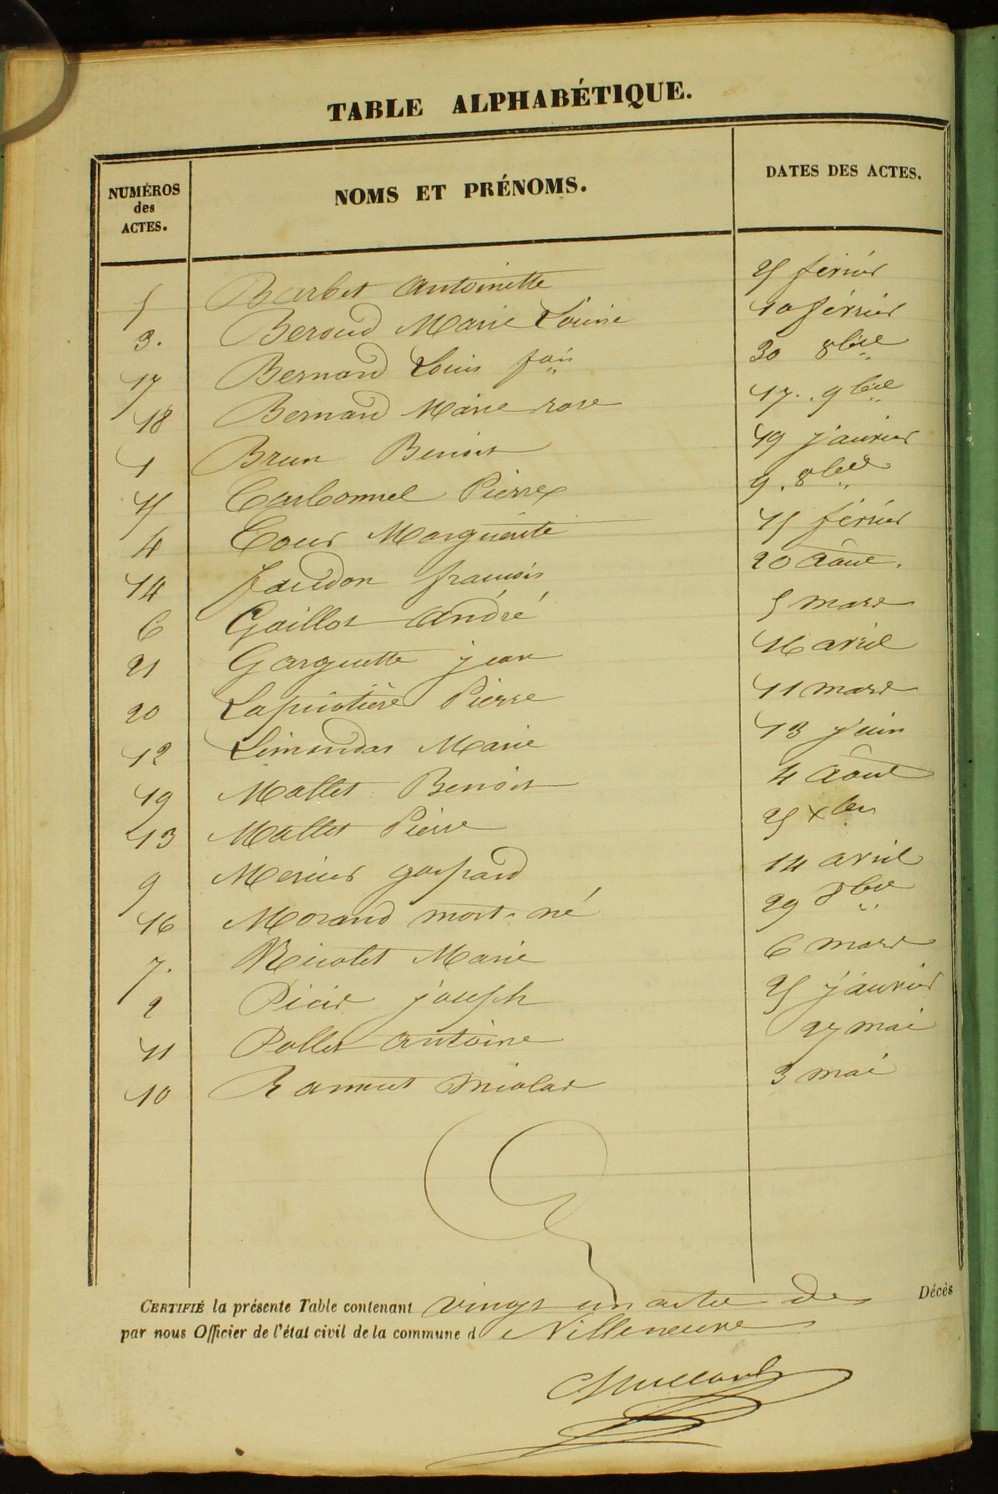 TABLE ALPHABÉTIQUE.
NUMÉROS des ACTES. NOMS ET PRÉNOMS. DATES DES ACTES.
5 Barbet Antoinette 25 février
3. Beroud Marie Louise 10 février
17 Bernard Louis fois 30 8bre
18 Bernard Marie rose 17. 9bre
1 Brun Benoit 19 janvier
15 Carbonnel Pierre 9. 8bre
4 Cour Marguerite 15 février
14 françois 20 Août.
6 Gaillot André 5 mars
21 Garguette jean 16 avril
20 Pierre 11 mars
12 Limandas Marie 13 juin
19 Mallet Benoit 4 Août
13 Mallet Pierre 25 xbre
9 Mercier gaspard 14 avril
16 Morand mort-né 29 8bre
7. Nicolet Marie 6 mars
2 joseph 25 janvier
11 Pollet antoine 27 mai
10 nicolas 3 mai
CERTIFIÉ la présente Table contenant vingt un acte de Décès
par nous Officier de l'état civil de la commune d Villeneuve